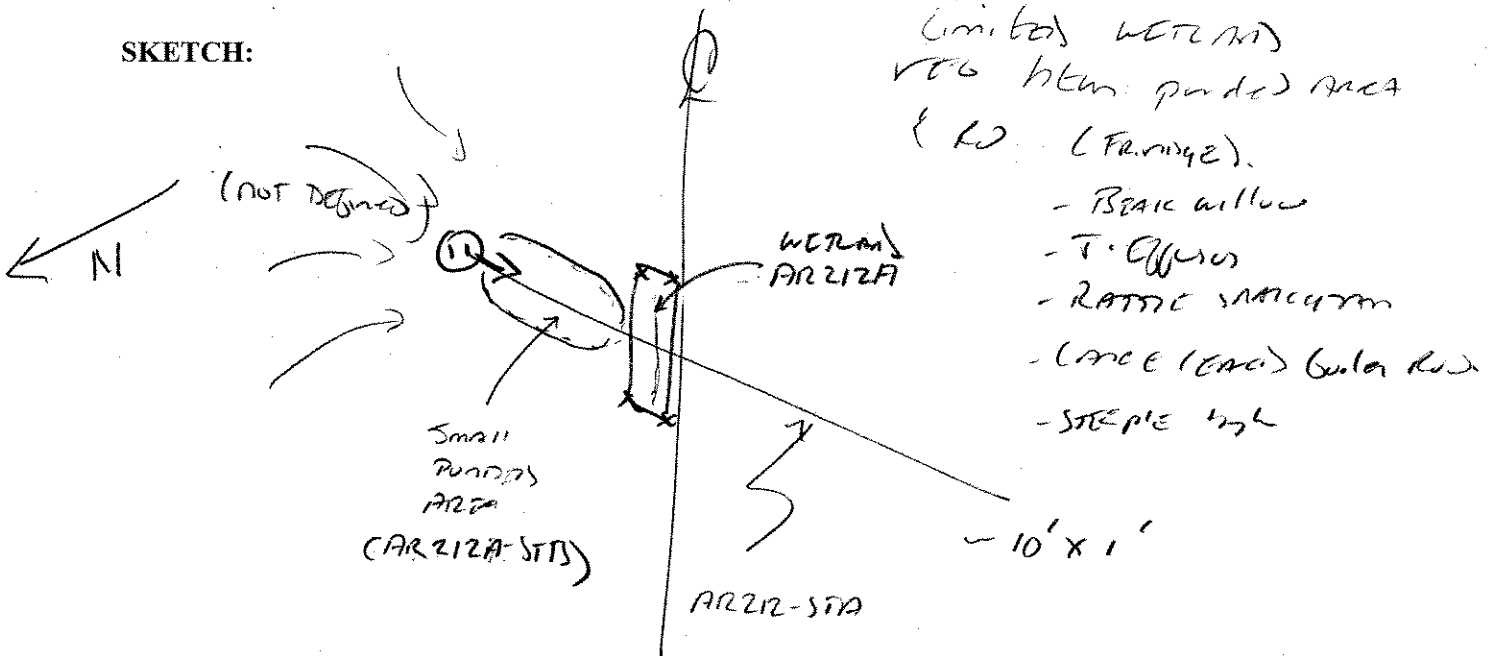 SKETCH:
Limited WETLAND
VEG btwn ponded AREA
(FRINGE).
- BEAK willow
- J. Effusus
- RATTLE SNAKE
- LANCE LEAF Golden Rod
- STEEPLE bush
(NOT DEFINED)
N
WETLAND
AR212A
SMALL
PONDED
AREA
(AR212A-STB)
~ 10' x 1'
AR212-STA